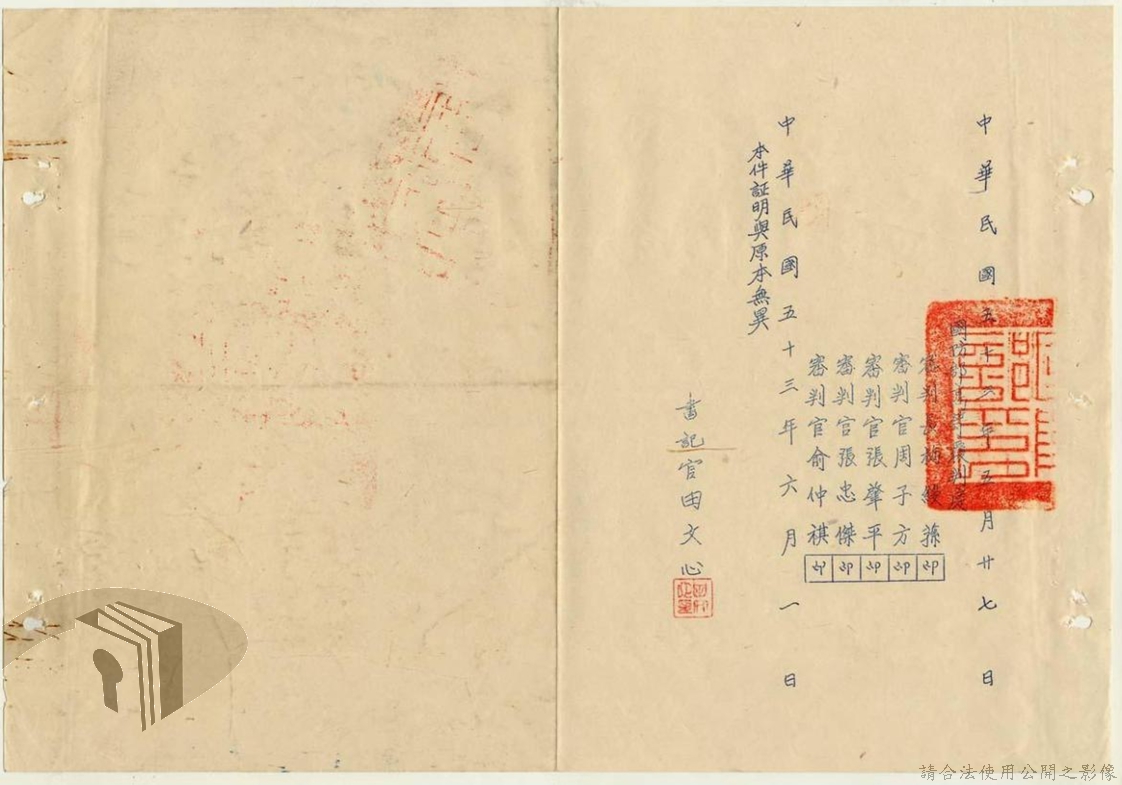 中華民國五十三年五月廿七日
國防部
審判長 綬孫
審判官周子方 印
審判官張肇平 印
審判官張忠傑 印
審判官俞仲祺 印
中華民國五十三年六月一日
本件証明與原本無異
書記官田文心
請合法使用公開之影像